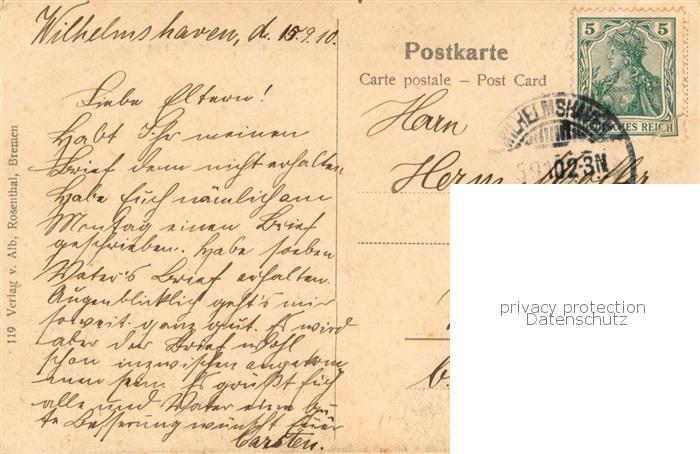 Wilhelmshaven, d. 15.9.10.
Liebe Eltern!
Habt Ihr meinen
Brief denn nicht erhalten
Habe Euch nämlich am
Montag einen Brief
geschrieben. Habe soeben
Vater's Brief erhalten.
Augenblicklich geht's mir
soweit ganz gut. Es wird
aber der Brief wohl
schon inzwischen angekom
menen sein. Es grüßt Euch
alle und Vater eine gu
te Besserung wünscht Euer
Carsten.
119 Verlag v. Alb. Rosenthal, Bremen
Postkarte
Carte postale – Post Card
5 5
REICH
WILHELMSHAVEN
2-3N
Herrn
privacy protection
Datenschutz